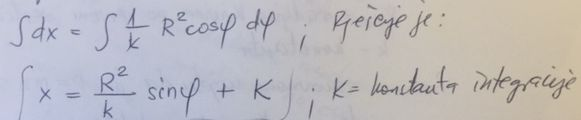 ∫dx = ∫ 1/k R² cosφ dφ ; Rješenje je:
∫ x = R²/k sinφ + K ∫ ; K = konstanta integracije